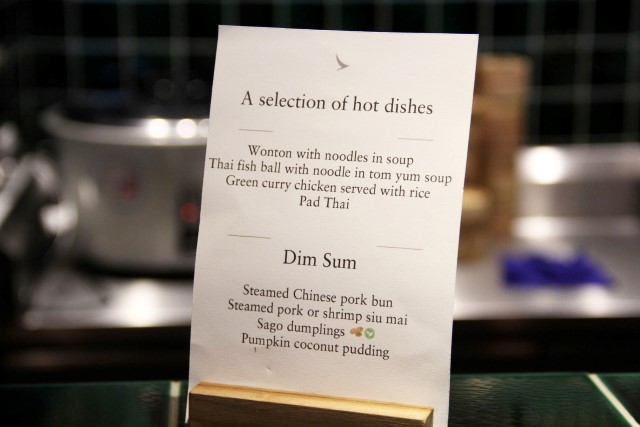 A selection of hot dishes
Wonton with noodles in soup
Thai fish ball with noodle in tom yum soup
Green curry chicken served with rice
Pad Thai
Dim Sum
Steamed Chinese pork bun
Steamed pork or shrimp siu mai
Sago dumplings
Pumpkin coconut pudding